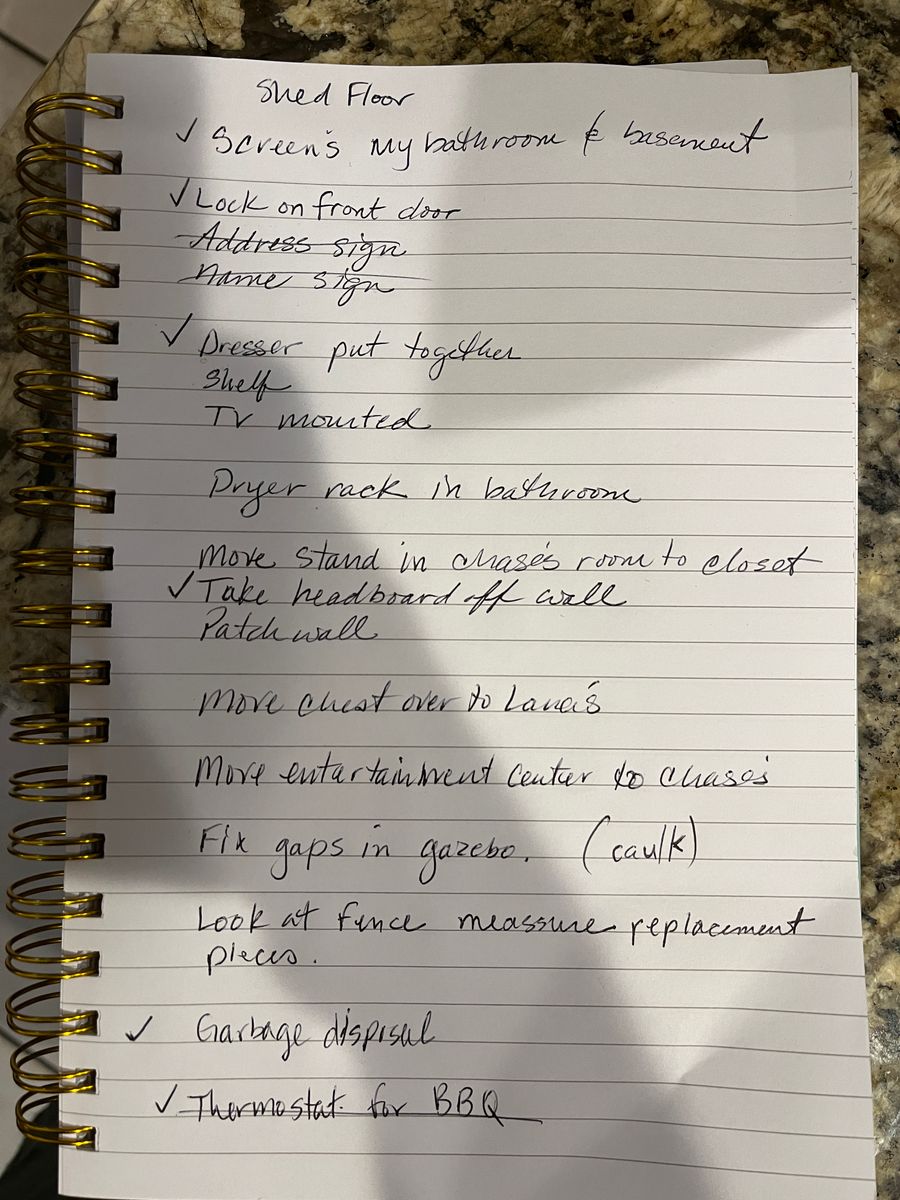 Shed Floor
✓ Screen's my bathroom & basement
✓ Lock on front door
Address sign
Name sign
✓ Dresser put together
Shelf
TV mounted
Dryer rack in bathroom
Move stand in chase's room to closet
✓ Take headboard off wall
Patch wall
Move chest over to Lane's
Move entertainment center to chase's
Fix gaps in gazebo. (caulk)
Look at fence meassure replacement
pieces.
✓ Garbage disposal
✓ Thermostat for BBQ